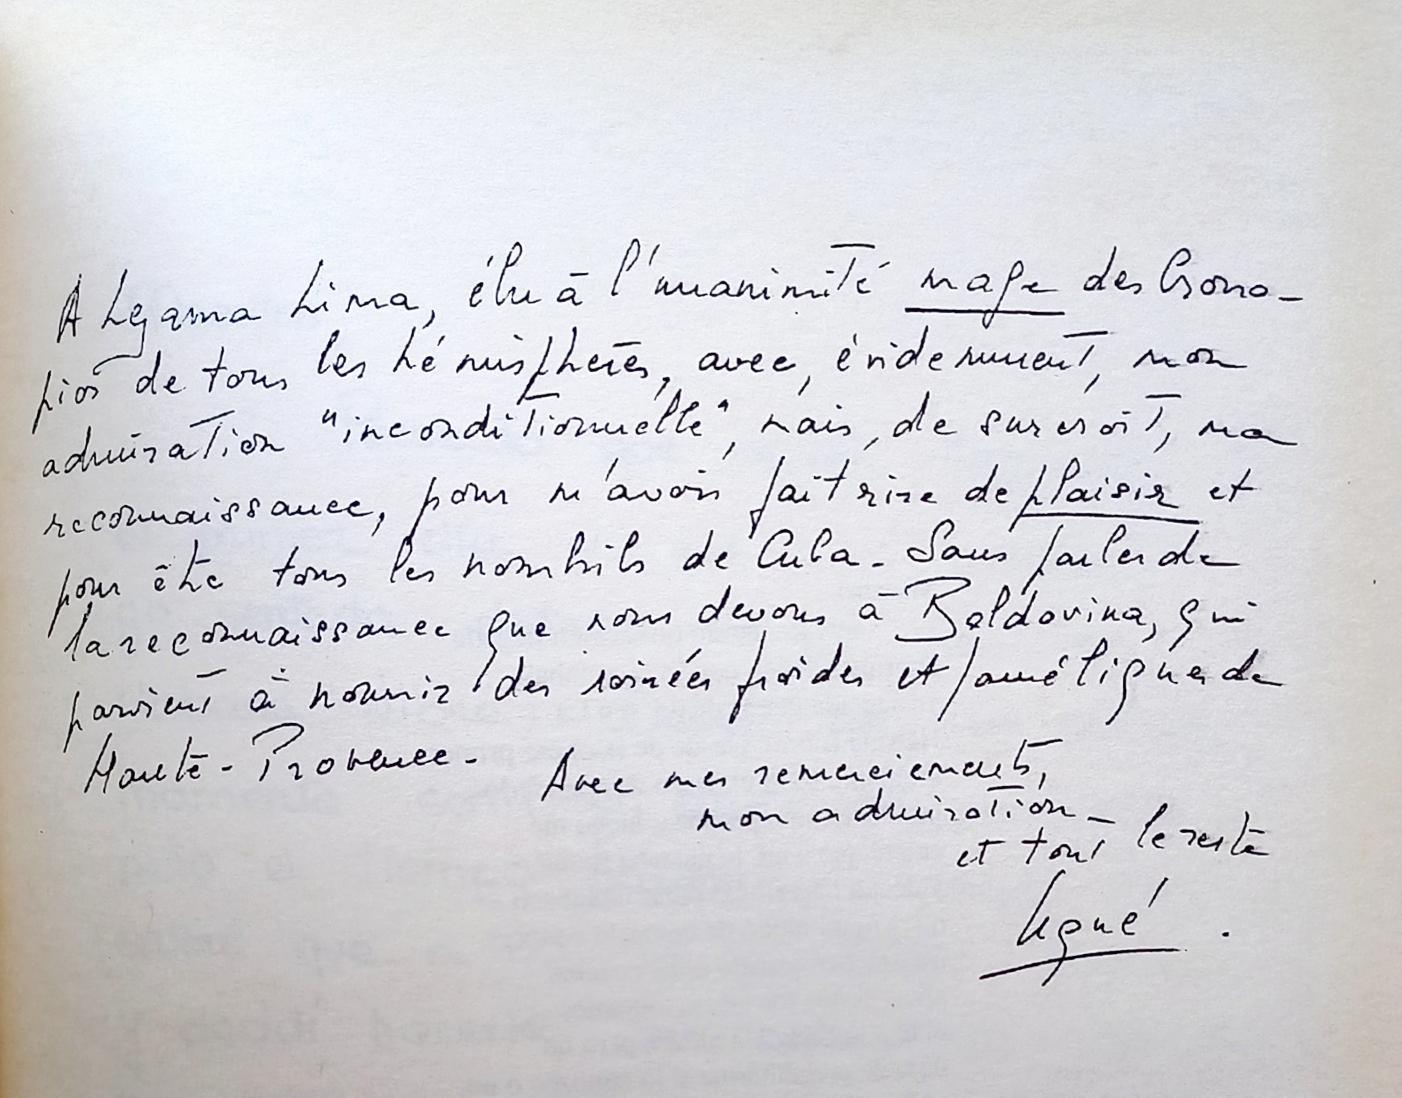 A Lezama Lima, élu à l'unanimité mage des Crono-
pios de tous les hémisphères, avec, évidemment, mon
admiration "inconditionnelle", mais, de surcroît, ma
reconnaissance, pour m'avoir fait rire de plaisir et
pour être tous les nombrils de Cuba. Sans parler de
la reconnaissance que nous devons à Baldovina, qui
parvient à nourrir des soirées froides et faméliques de
Haute-Provence.
Avec mes remerciements,
mon admiration
et tout le reste